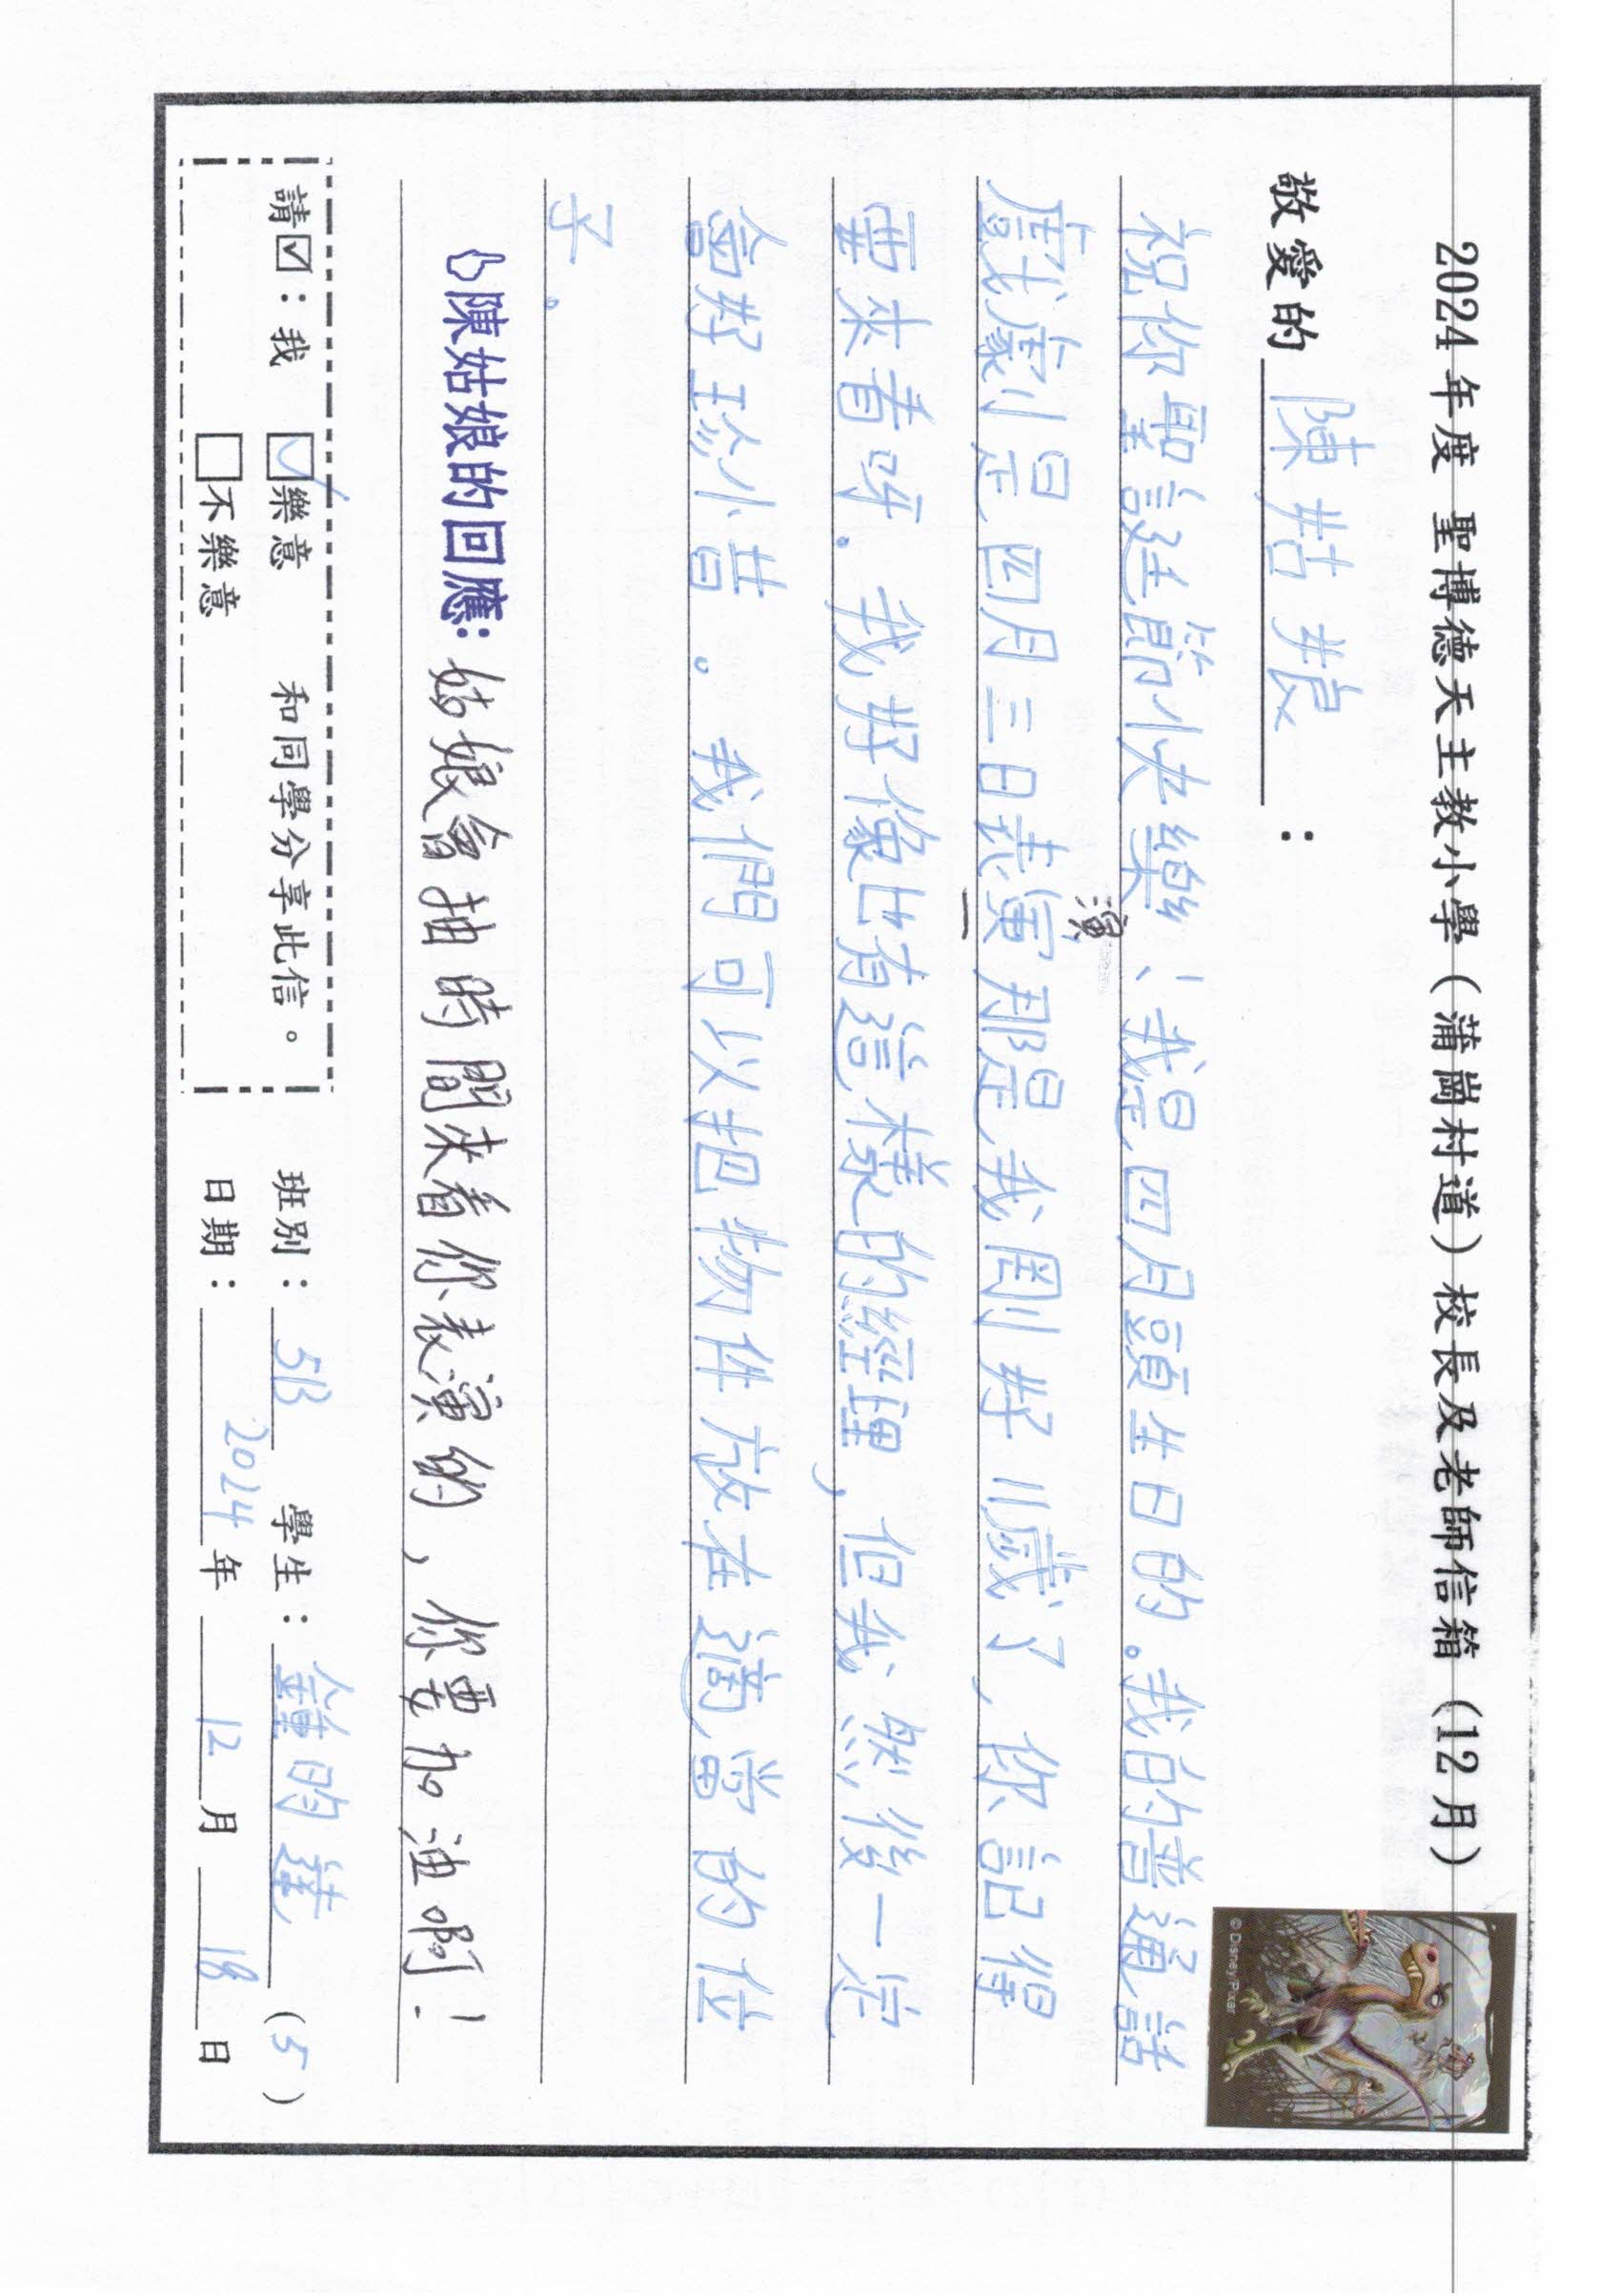 2024年度 聖博德天主教小學(蒲崗村道)校長及老師信箱(12月)
敬愛的 陳姑娘 :
祝你聖誕節快樂、我是四月頭生日的。我的普通話
演
戲劇是四月三日表演那是我剛好11歲了,你記得
要來看呀。我好像也有這樣的經理,但我然後一定
會好珍小昔。我們可以把物件放在適當的位
子。
陳姑娘的回應:姑娘會抽時間來看你表演的,你要加油啊!
請☑:我 ☑樂意 和同學分享此信。
□不樂意
班別: 5B 學生: 鍾昀達 (5)
日期: 2024 年 12 月 18 日
© Disney/Pixar